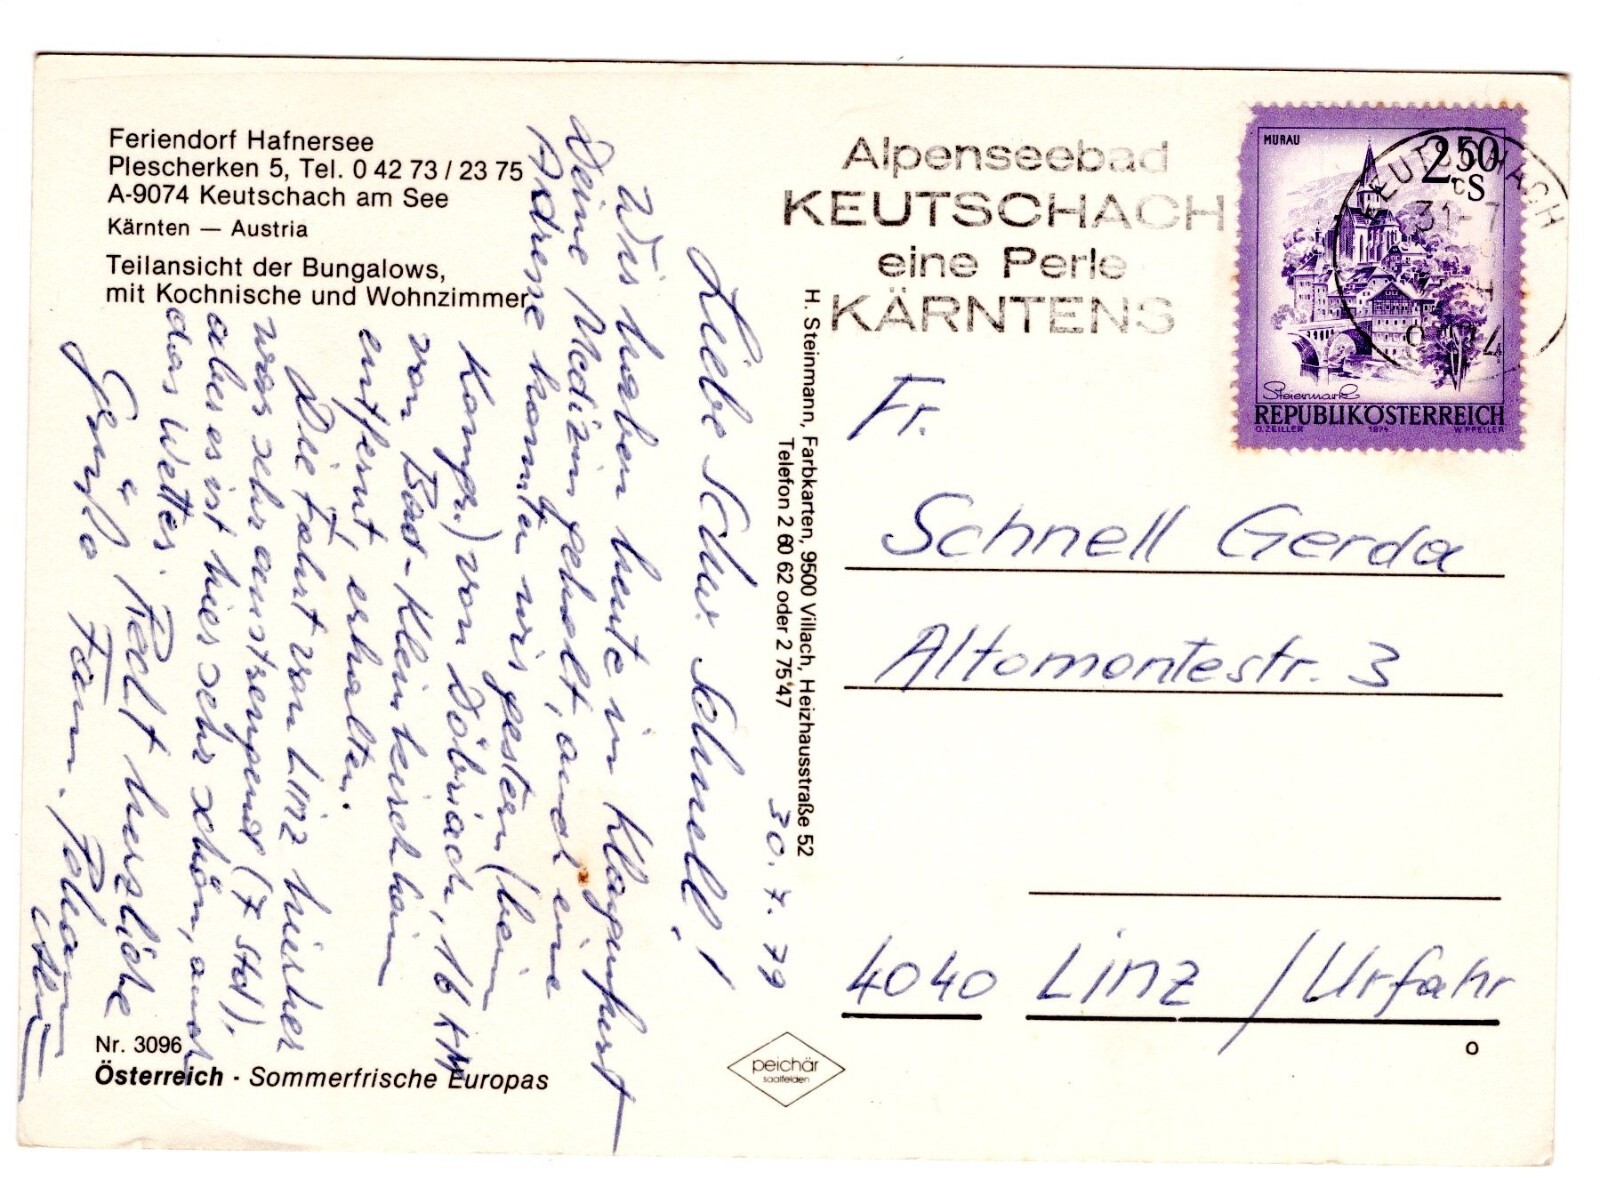 Feriendorf Hafnersee
Plescherken 5, Tel. 0 42 73 / 23 75
A-9074 Keutschach am See
Kärnten — Austria
Teilansicht der Bungalows,
mit Kochnische und Wohnzimmer
30. 7. 79
Liebe Schw. Schnell!
Wir haben heute in Klagenfurt
Deine Medizin geholt, auch eine
Adresse konnten wir gestern (beim
Kongr.) von Döbriach, 16 KM
von Bad-Kleinkirchheim
entfernt, erhalten.
Die Fahrt von Linz hierher
war sehr anstrengend (7 Std).
aber es ist hier sehr schön, auch
das Wetter. Recht herzliche
Grüße Fam.
Nr. 3096
Österreich - Sommerfrische Europas
H. Steinmann, Farbkarten, 9500 Villach, Heizhausstraße 52
Telefon 2 60 62 oder 2 75 47
peichär
saalfelden
Alpenseebad
KEUTSCHACH
eine Perle
KÄRNTENS
MURAU
2.50
S
KEUTSCHACH
31-7
Steiermark
REPUBLIK ÖSTERREICH
O. ZEILLER 1974 W. PFEILER
Fr.
Schnell Gerda
Altomontestr. 3
4040 Linz / Urfahr
o